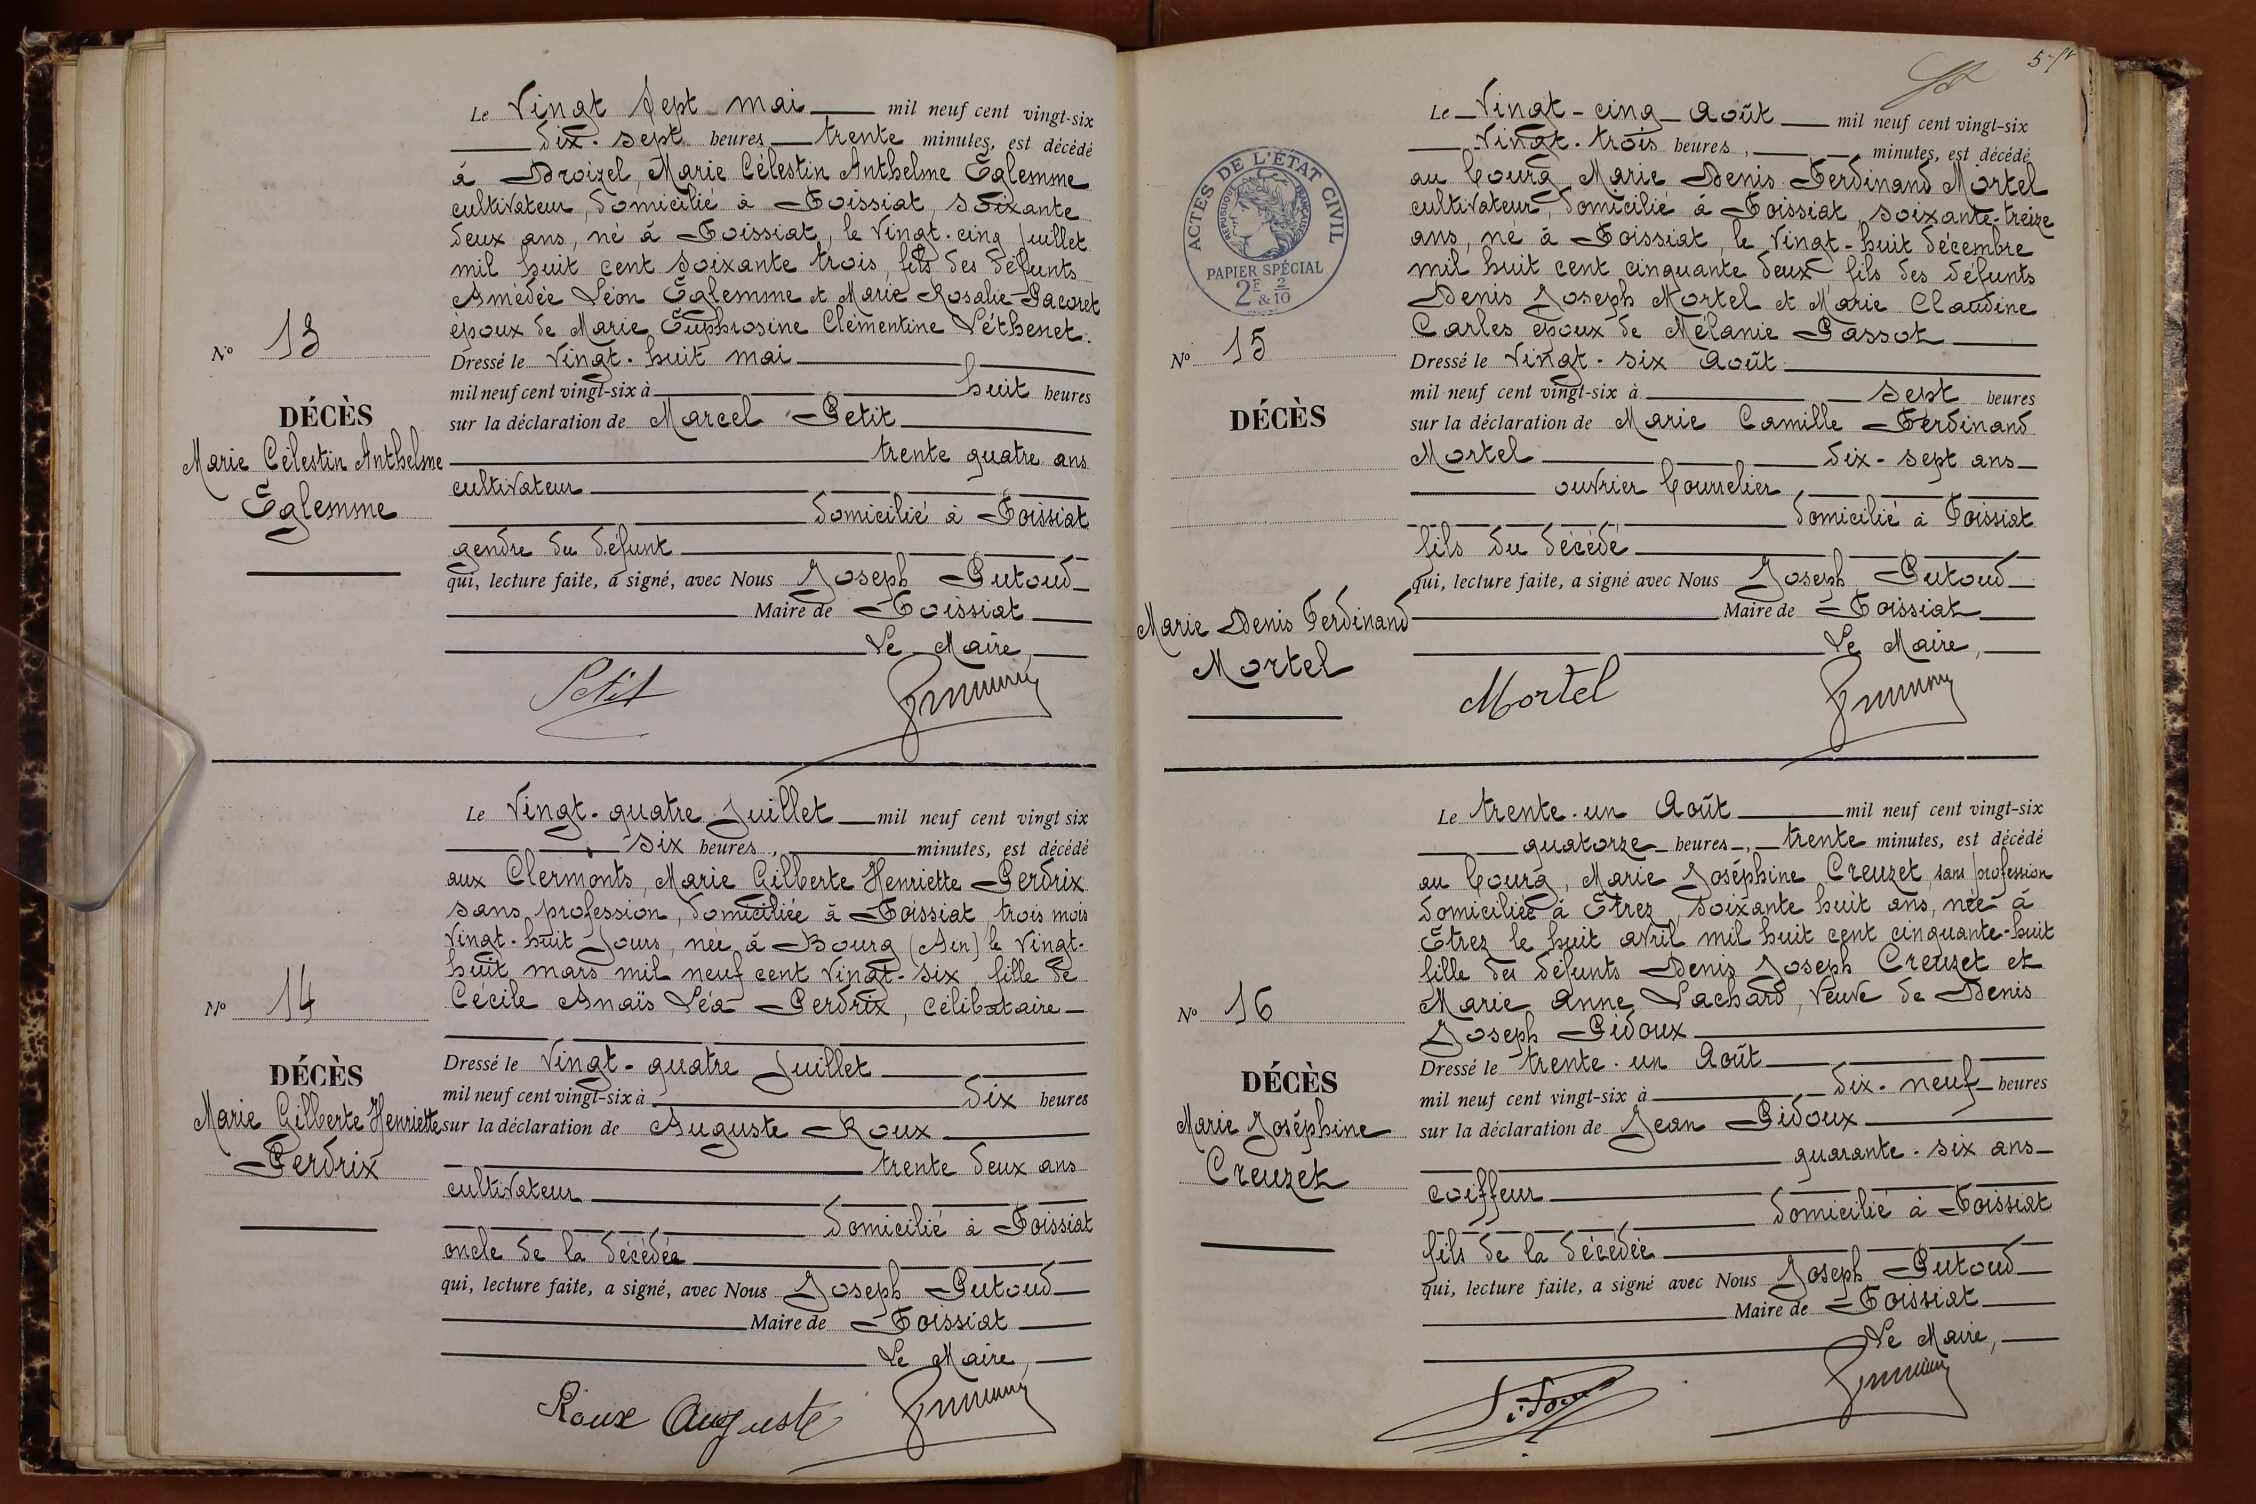 Le Vingt Sept mai mil neuf cent vingt-six
dix-sept heures trente minutes, est décédé
à Droizel, Marie Célestin Anthelme Eglemme
cultivateur, domicilié à Foissiat, soixante
deux ans, né à Foissiat, le Vingt-cinq Juillet
mil huit cent soixante trois, fils des défunts
Amédée Léon Eglemme et Marie Rosalie Pacoret
époux de Marie Euphrosine Clémentine Véthenet.
Nº 13
Dressé le Vingt-huit mai
mil neuf cent vingt-six à huit heures
DÉCÈS
sur la déclaration de Marcel Petit
Marie Célestin Anthelme
Eglemme
trente quatre ans
cultivateur
domicilié à Foissiat
gendre du défunt
qui, lecture faite, a signé, avec Nous Joseph Putoud
Maire de Foissiat
Le Maire,
Petit
Le Vingt-quatre Juillet mil neuf cent vingt six
six heures, minutes, est décédé
aux Clermonts, Marie Gilberte Henriette Perdrix
sans profession, domiciliée à Foissiat, trois mois
Vingt-huit Jours, née à Bourg (Ain) le Vingt-
huit mars mil neuf cent Vingt-six fille de
Cécile Anaïs Léa Perdrix, célibataire
Nº 14
Dressé le Vingt-quatre Juillet
DÉCÈS
mil neuf cent vingt-six à dix heures
Marie Gilberte Henriette
Perdrix
sur la déclaration de Auguste Roux
trente deux ans
cultivateur
domicilié à Foissiat
oncle de la décédée
qui, lecture faite, a signé, avec Nous Joseph Putoud
Maire de Foissiat
Le Maire,
Roux Auguste
ACTES DE L'ÉTAT CIVIL
RÉPUBLIQUE FRANÇAISE
PAPIER SPÉCIAL
2F & 2/10
Le Vingt-cinq Août mil neuf cent vingt-six
Vingt-trois heures, minutes, est décédé
au bourg Marie Denis Ferdinand Mortel
cultivateur, domicilié à Foissiat, soixante-treize
ans, né à Foissiat, le Vingt-huit décembre
mil huit cent cinquante deux fils des défunts
Denis Joseph Mortel et Marie Claudine
Carles époux de Mélanie Passot
Nº 15
Dressé le Vingt-six Août
mil neuf cent vingt-six à sept heures
DÉCÈS
sur la déclaration de Marie Camille Ferdinand
Mortel dix-sept ans
ouvrier bourrelier
domicilié à Foissiat
fils du décédé
qui, lecture faite, a signé avec Nous Joseph Putoud
Maire de Foissiat
Marie Denis Ferdinand
Mortel
Le Maire,
Mortel
Le trente-un Août mil neuf cent vingt-six
quatorze heures, trente minutes, est décédé
au bourg, Marie Joséphine Creuzet, sans profession
domiciliée à Etrez, soixante huit ans, née à
Etrez le huit avril mil huit cent cinquante-huit
fille des défunts Denis Joseph Creuzet et
Marie Anne Lachard, Veuve de Denis
Joseph Pidoux
Nº 16
Dressé le trente-un Août
DÉCÈS
mil neuf cent vingt-six à dix-neuf heures
Marie Joséphine
Creuzet
sur la déclaration de Jean Pidoux
quarante-six ans
coiffeur
domicilié à Foissiat
fils de la décédée
qui, lecture faite, a signé avec Nous Joseph Putoud
Maire de Foissiat
Le Maire,
Pidoux